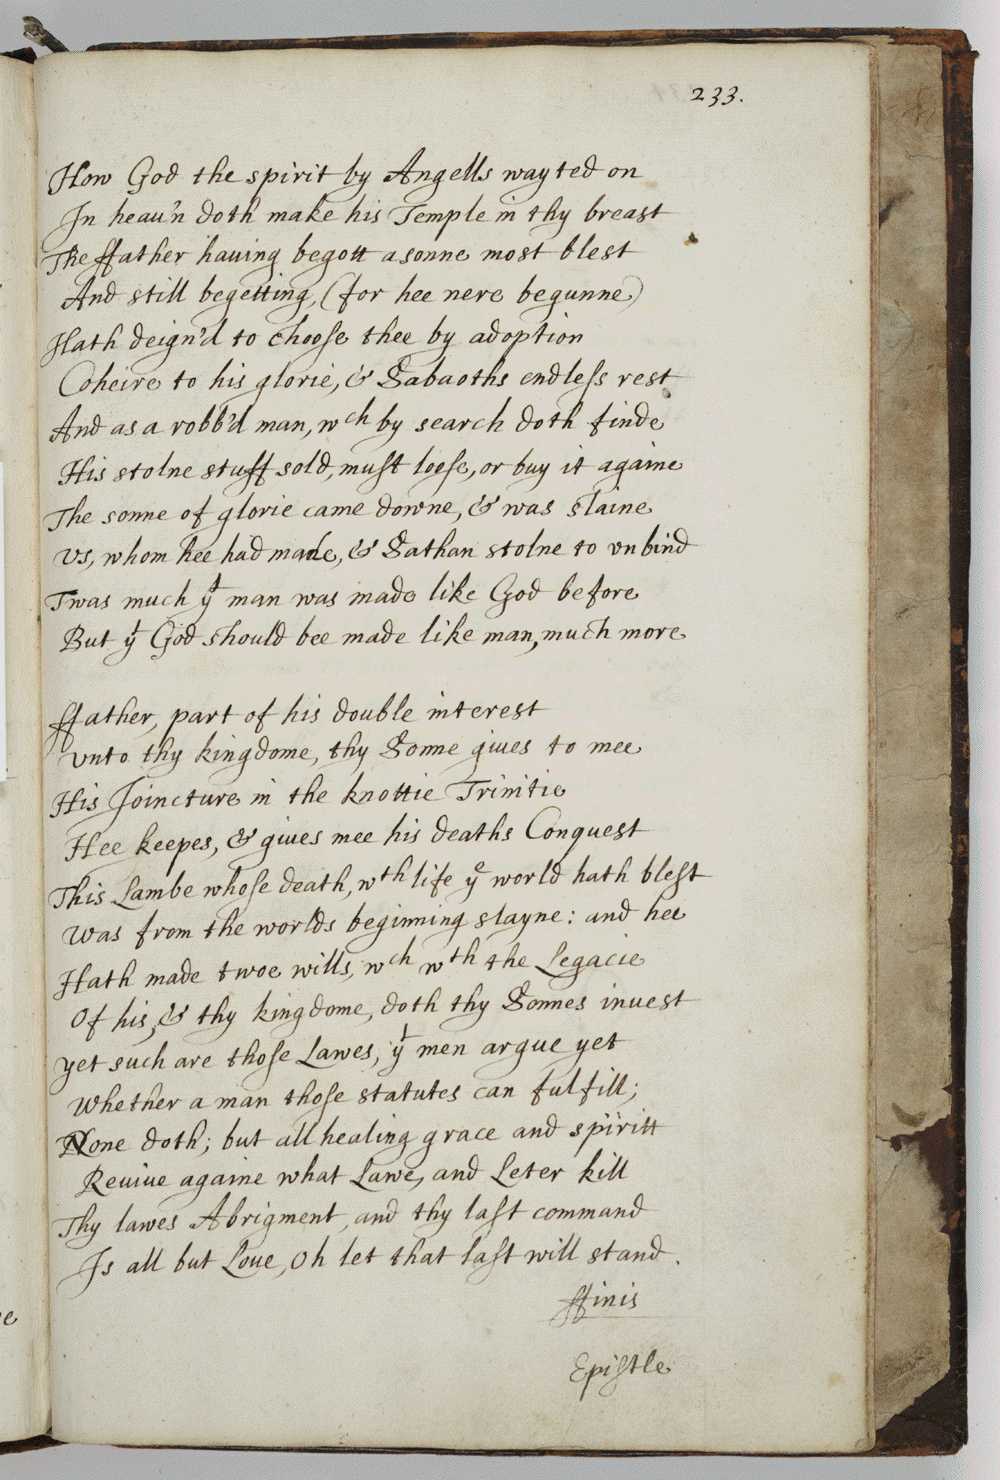 233.
How God the spirit by Angells wayted on
In heau'n doth make his Temple in thy breast
The ffather hauing begott a sonne most blest
And still begetting, (for hee nere begunne)
Hath deign'd to choose thee by adoption
Coheire to his glorie, & Sabaoths endless rest
And as a robb'd man, wch by search doth finde
His stolne stuff sold, must loese, or buy it againe
The sonne of glorie came downe, & was slaine
Vs, whom hee had made, & Sathan stolne to vnbind
Twas much yt man was made like God before
But yt God should bee made like man, much more
ffather, part of his double interest
vnto thy kingdome, thy Sonne giues to mee
His Joincture in the knottie Trinitie
Hee keepes, & giues mee his deaths Conquest
This Lambe whose death, wth life ye world hath blest
was from the worlds beginning slayne: and hee
Hath made twoe wills, wch wth the Legacie
Of his, & thy kingdome, doth thy Sonnes inuest
yet such are those Lawes, yt men argue yet
Whether a man those statutes can fulfill;
None doth; but all healing grace and spiritt
Reuiue againe what Lawe, and Leter kill
Thy lawes Abrigment, and thy last command
Is all but Loue, Oh let that last will stand.
ffinis
Epistle